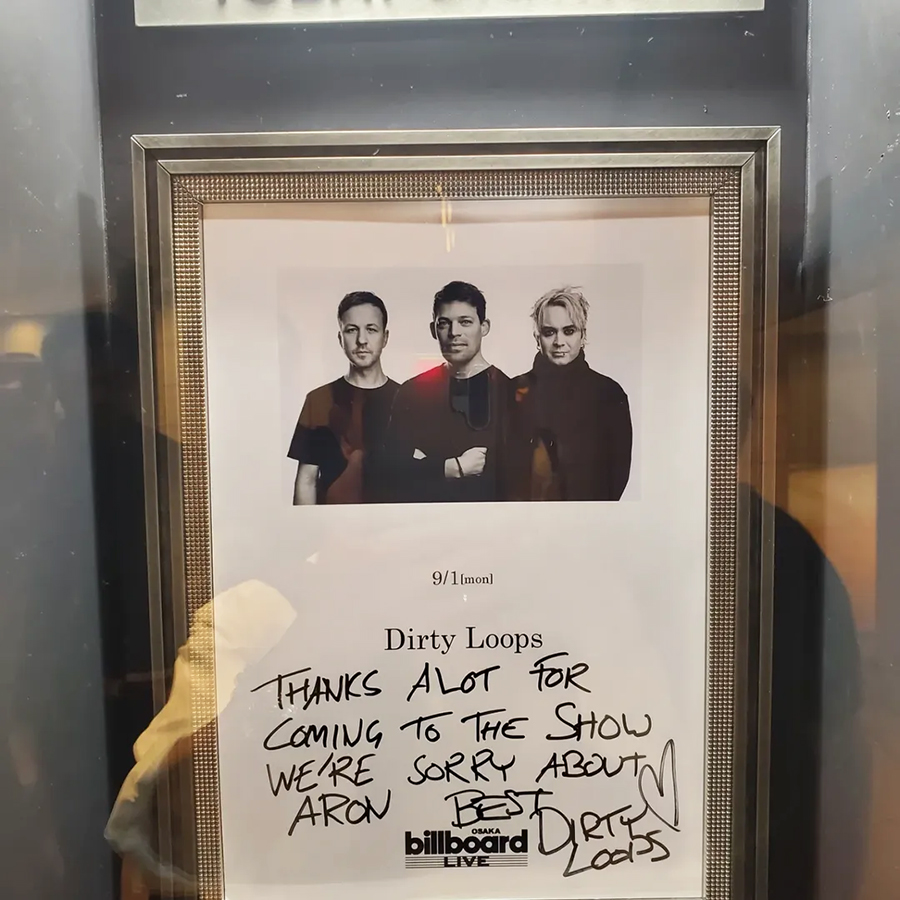 9/1[mon]
Dirty Loops
THANKS ALOT FOR
COMING TO THE SHOW
WE'RE SORRY ABOUT
ARON BEST
DIRTY
LOOPS
OSAKA
billboard
LIVE